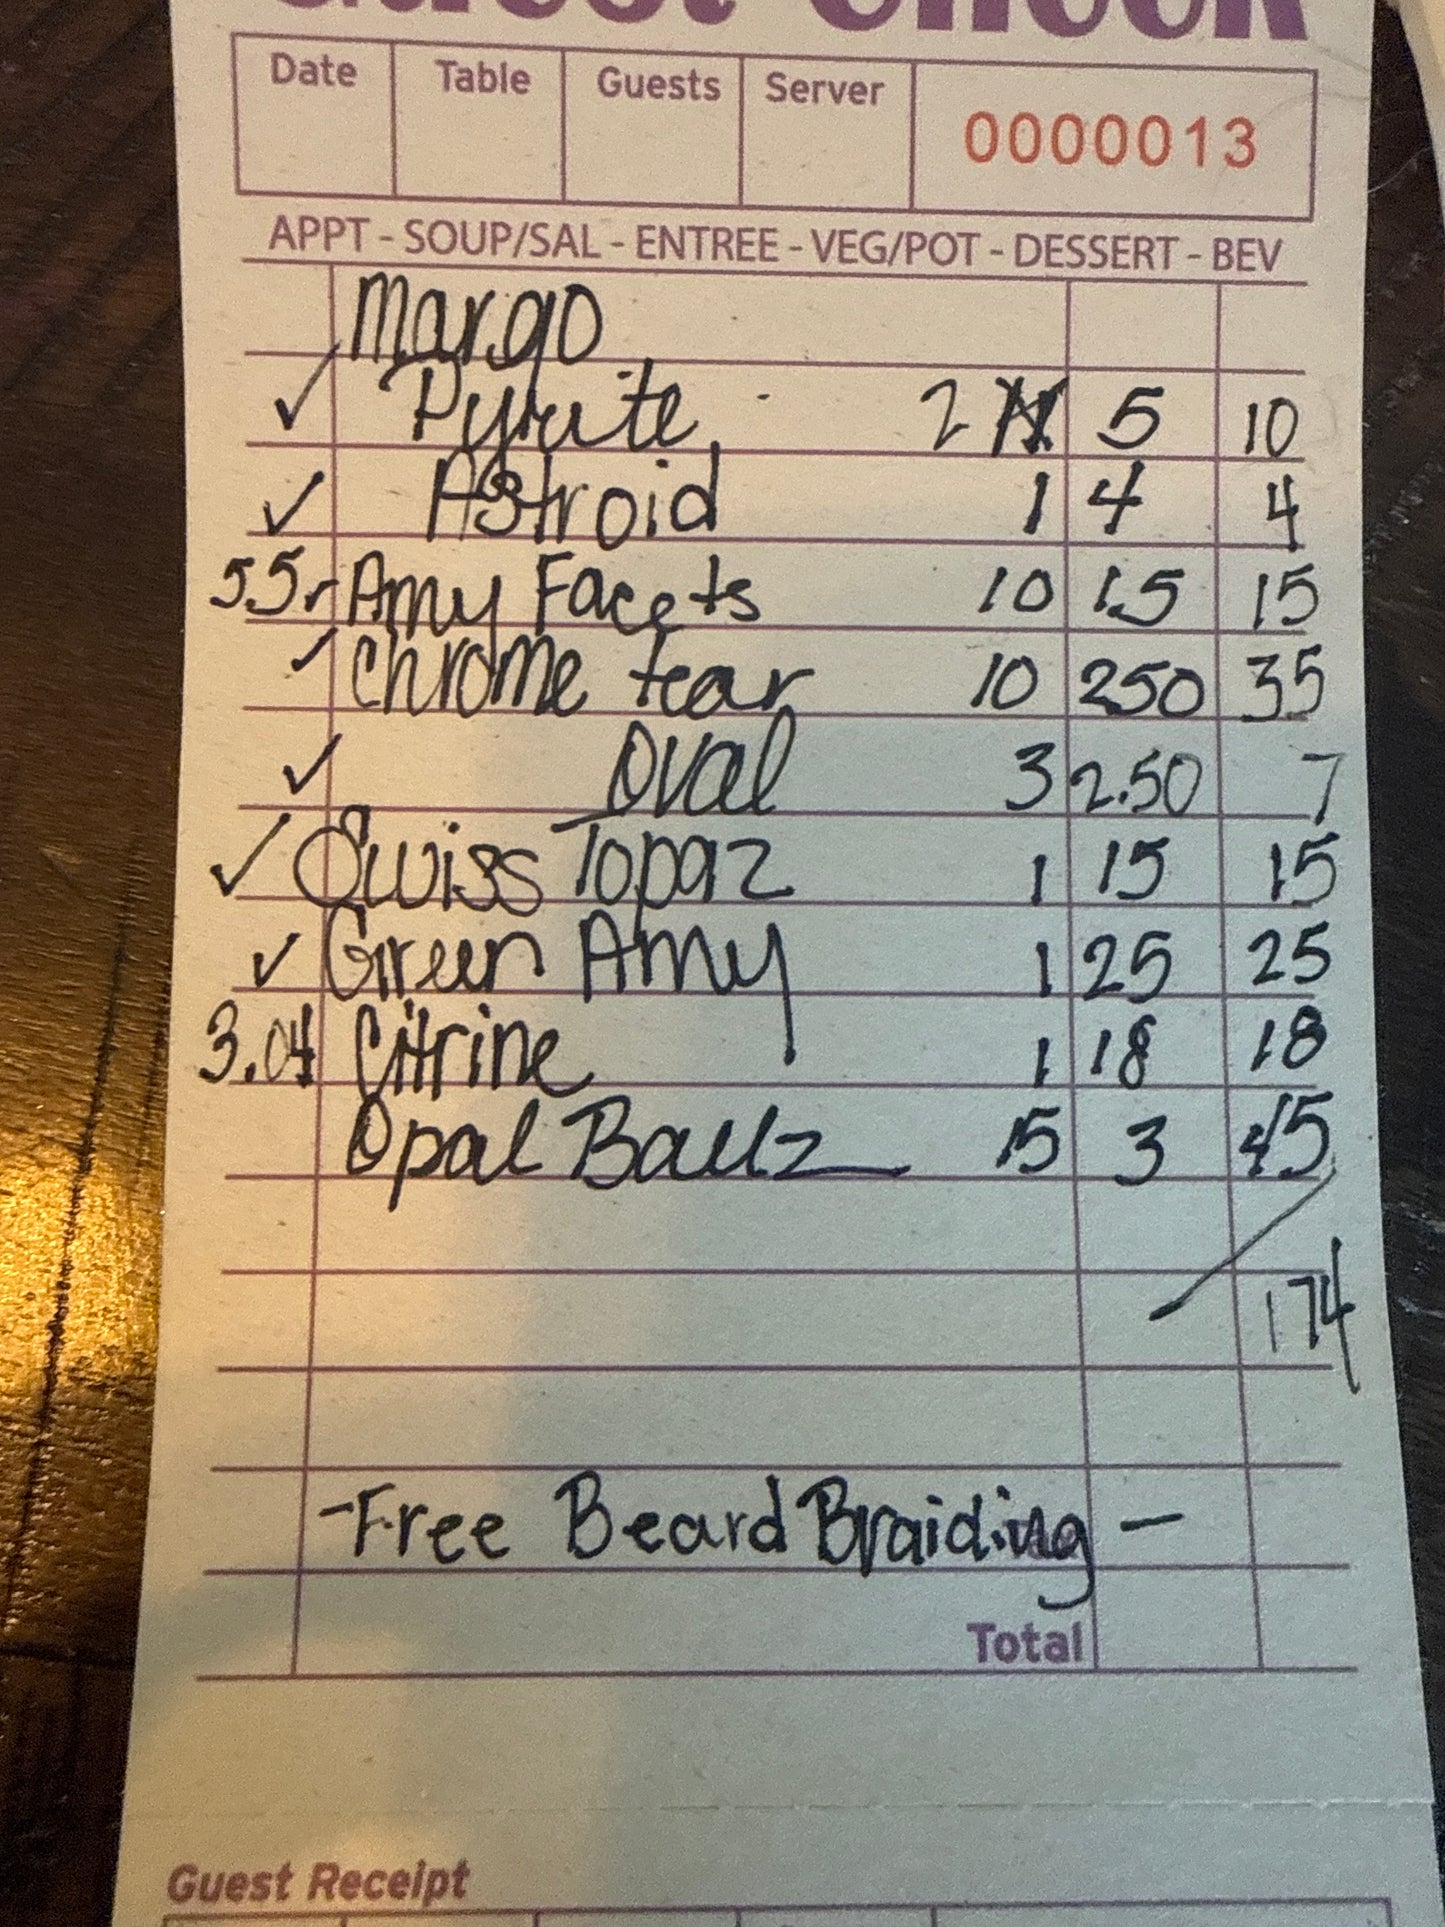 Guest Check
Date Table Guests Server 0000013
APPT - SOUP/SAL - ENTREE - VEG/POT - DESSERT - BEV
Margo
✓ Pyrite 2 5 10
✓ Astroid 1 4 4
55 Amy Facets 10 1.5 15
✓ Chrome tear 10 250 35
✓ Oval 3 2.50 7
✓ Swiss Topaz 1 15 15
✓ Green Amy 1 25 25
3.04 Citrine 1 18 18
Opal Ballz 15 3 45
174
-Free Beard Braiding-
Total
Guest Receipt